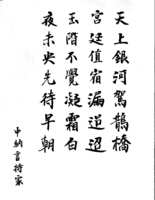 天上銀河駕鵲橋
宮廷值宿漏迢迢
玉階不覺凝霜白
夜未央先待早朝
中納言持家